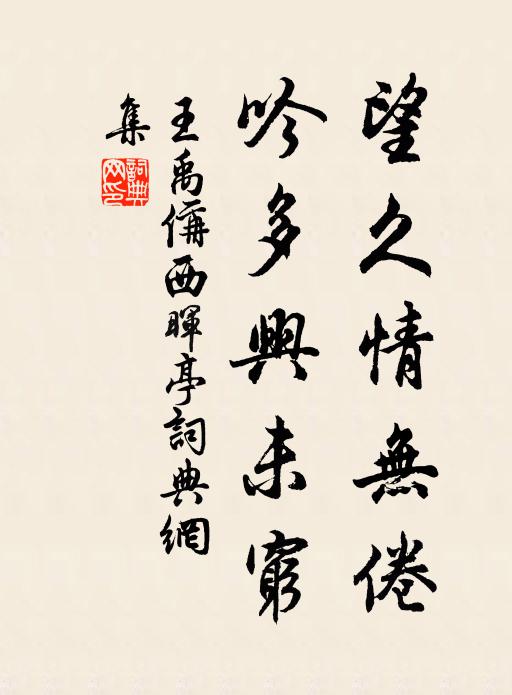 望久情無倦
吟多興未窮
王禹偁西暉亭詞典網
集
詞典網印